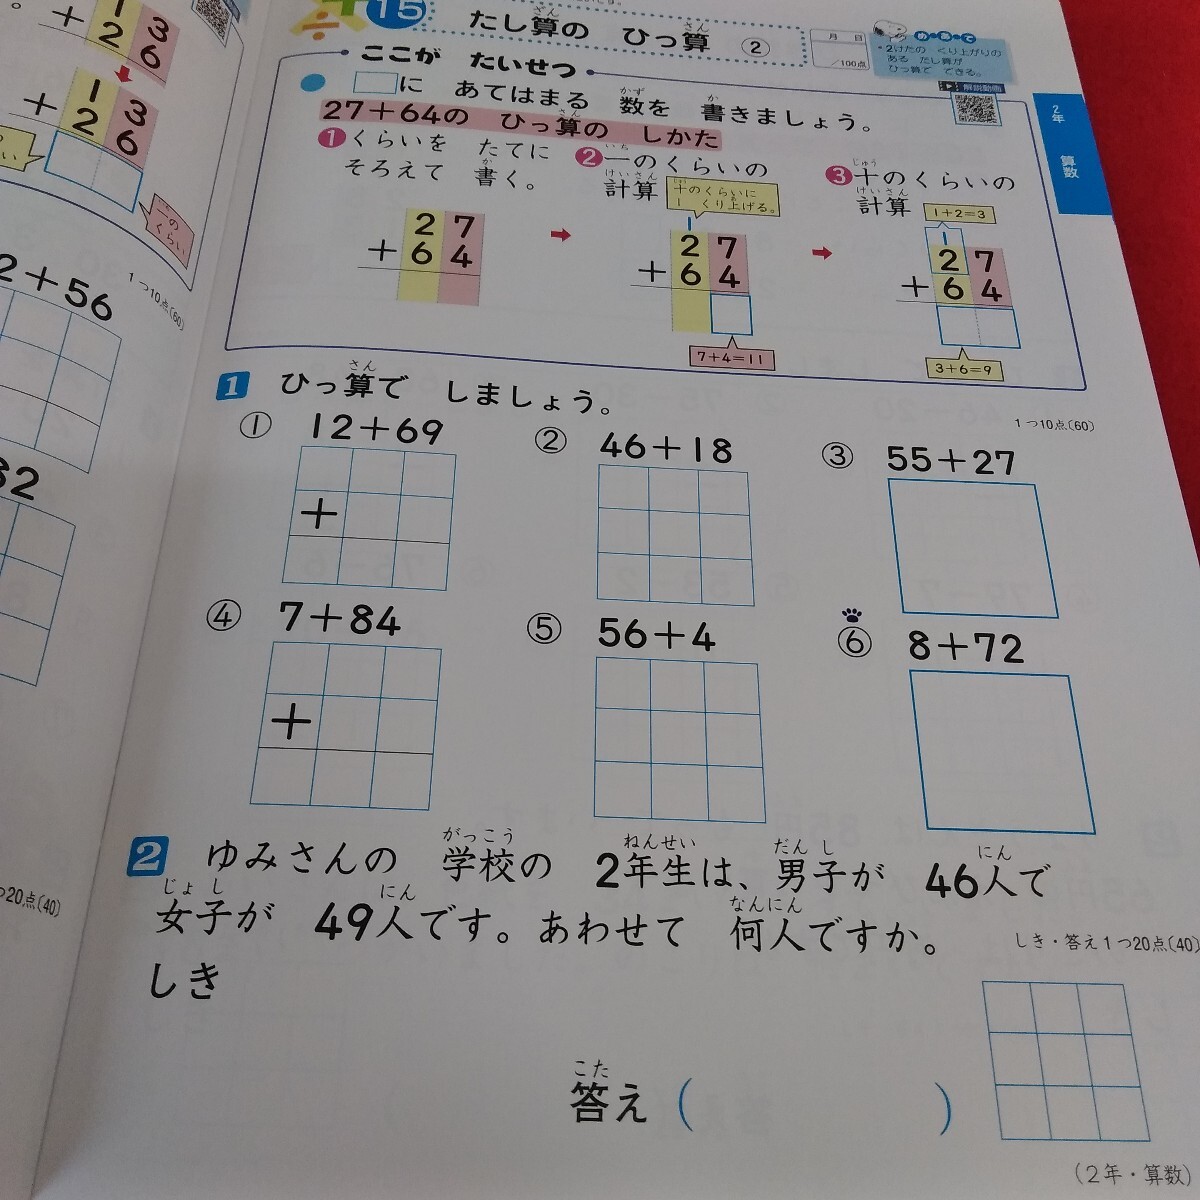 15 たし算の ひっ算 ②
月 日
/100点
め・あ・て
・2けたの くり上がりの
ある たし算が
ひっ算で できる。
解説動画
ここが たいせつ
□に あてはまる 数を 書きましょう。
27+64の ひっ算の しかた
❶くらいを たてに
そろえて 書く。
27
+64
❷一のくらいの
計算
十のくらいに
1 くり上げる。
1
27
+64
7+4=11
❸十のくらいの
計算
1+2=3
1
27
+64
3+6=9
2年 算数
1 ひっ算で しましょう。
1つ10点(60)
① 12+69
+
② 46+18
③ 55+27
④ 7+84
+
⑤ 56+4
⑥ 8+72
2 ゆみさんの 学校の 2年生は、男子が 46人で
女子が 49人です。あわせて 何人ですか。
しき・答え1つ20点(40)
しき
答え ( )
(2年・算数)
13
+26
13
+26
一の
くらい
1つ10点(60)
2+56
32
つ20点(40)